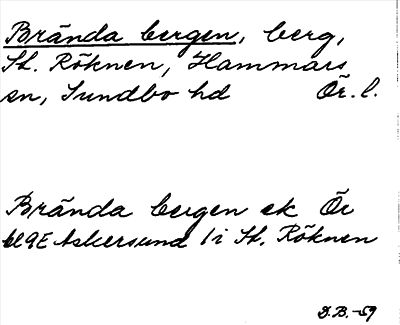 Brända bergen, berg,
St. Röknen, Hammars
sn, Sundbo hd Ör. l.
Brända bergen ek Ör
bl 9E Askersund 1i St. Röknen
D.B.-59